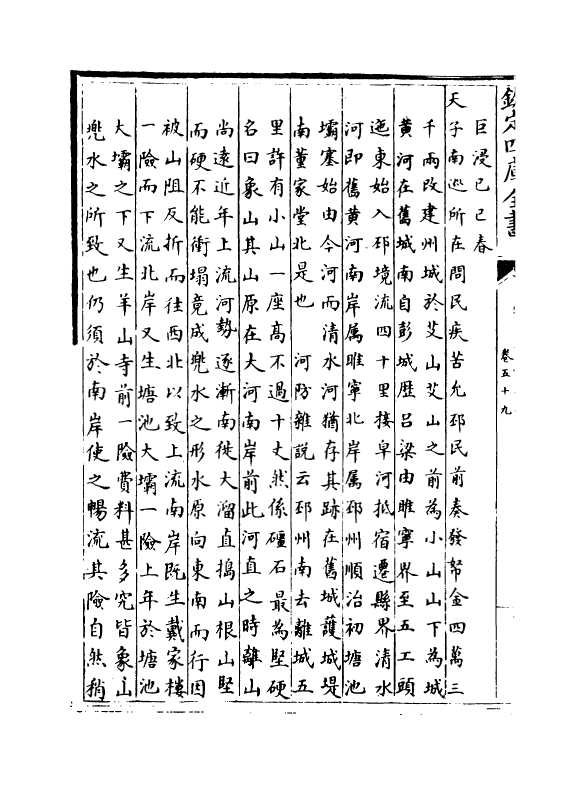 欽定四庫全書
卷五十九
巨浸己巳春
天子南巡所在問民疾苦允邳民前奏發帑金四萬三
千兩改建州城於艾山艾山之前為小山山下為城
黄河在舊城南自彭城歴吕梁由睢寧界至五工頭
迤東始入邳境流四十里接皁河抵宿遷縣界清水
河即舊黄河南岸属睢寧北岸属邳州順治初塘池
壩塞始由今河而清水河猶存其跡在舊城護城堤
南董家堂北是也　河防雜說云邳州南去離城五
里許有小山一座高不過十丈然係礓石最為堅硬
名曰象山其山原在大河南岸前此河直之時離山
尚遠近年上流河勢逐漸南徙大溜直搗山根山堅
而硬不能衝塌竟成兠水之形水原向東南而行因
被山阻反折而往西北以致上流南岸既生戴家樓
一險而下流北岸又生塘池大壩一險上年於塘池
大壩之下又生羊山寺前一險費料甚多究皆象山
兠水之所致也仍須於南岸使之暢流其險自然稍